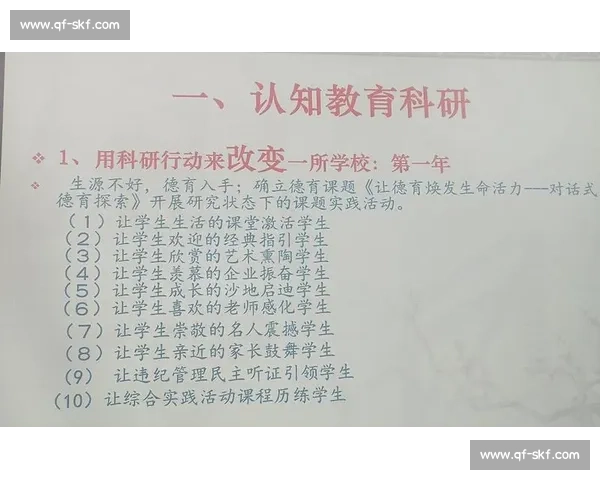 www.qf-skf.com
一、认知教育科研
❖ 1、用科研行动来改变一所学校：第一年
❖ 生源不好，德育入手；确立德育课题《让德育焕发生命活力——对话式
德育探索》开展研究状态下的课题实践活动。
（1）让学生生活的课堂激活学生
（2）让学生欢迎的经典指引学生
（3）让学生欣赏的艺术熏陶学生
（4）让学生羡慕的企业振奋学生
（5）让学生成长的沙地启迪学生
（6）让学生喜欢的老师感化学生
（7）让学生崇敬的名人震撼学生
（8）让学生亲近的家长鼓舞学生
（9） 让违纪管理民主听证引领学生
（10）让综合实践活动课程历练学生
www.qf-skf.com